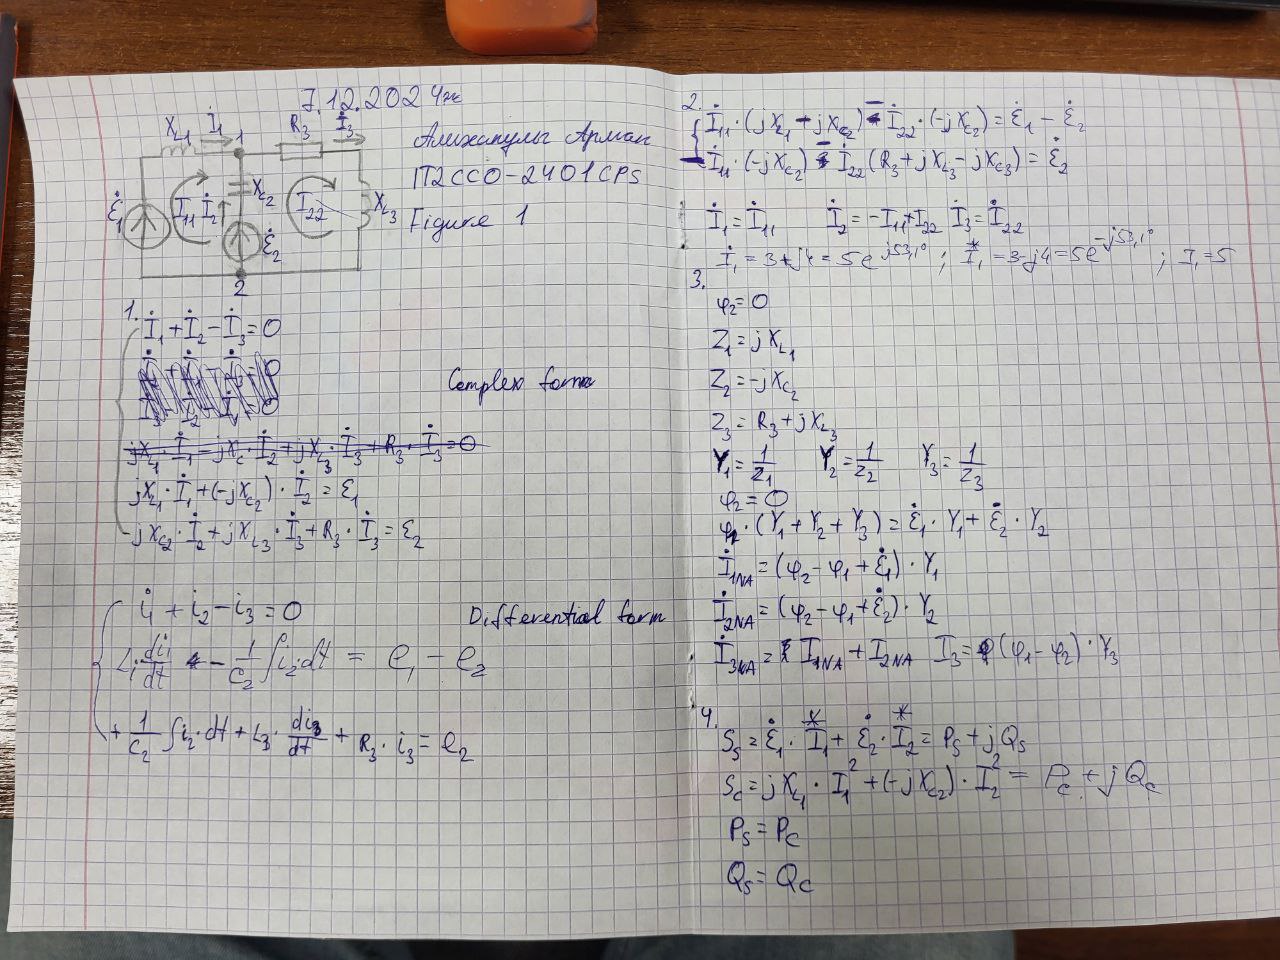 7.12.2024ж
Арман
IT2CCO-2401CPS
Figure 1
X_L1 İ_1 1 R_3 İ_3
Ė_1 I_11 İ_2 X_C2 I_22 X_L3
Ė_2
2
1.
İ_1 + İ_2 - İ_3 = 0
Complex form
jX_L1 · İ_1 + (-jX_C2) · İ_2 = Ɛ_1
jX_C2 · İ_2 + jX_L3 · İ_3 + R_3 · İ_3 = Ɛ_2
i_1 + i_2 - i_3 = 0 Differential form
L_1 · di_1/dt - 1/C_2 ∫ i_2 · dt = e_1 - e_2
+ 1/C_2 ∫ i_2 · dt + L_3 · di_3/dt + R_3 · i_3 = e_2
2.
İ_11 · (jX_L1 - jX_C2) - İ_22 · (-jX_C2) = Ɛ̇_1 - Ɛ̇_2
-İ_11 · (-jX_C2) + İ_22 (R_3 + jX_L3 - jX_C3) = Ɛ̇_2
İ_1 = İ_11 İ_2 = -I_11 + I_22 İ_3 = İ_22
İ_1 = 3 + j4 = 5e^j53,1° ; I*_1 = 3 - j4 = 5e^-j53,1° ; I_1 = 5
3.
φ_2 = 0
Z_1 = jX_L1
Z_2 = -jX_C2
Z_3 = R_3 + jX_L3
Y_1 = 1/Z_1 Y_2 = 1/Z_2 Y_3 = 1/Z_3
φ_2 = 0
φ_1 · (Y_1 + Y_2 + Y_3) = Ɛ̇_1 · Y_1 + Ɛ̇_2 · Y_2
İ_1NA = (φ_2 - φ_1 + Ɛ̇_1) · Y_1
İ_2NA = (φ_2 - φ_1 + Ɛ̇_2) · Y_2
İ_3NA = I_1NA + I_2NA I_3 = (φ_1 - φ_2) · Y_3
4.
S_S = Ɛ̇_1 · I*_1 + Ɛ̇_2 · I*_2 = P_S + jQ_S
S_C = jX_L1 · I_1^2 + (-jX_C2) · I_2^2 = P_C + jQ_C
P_S = P_C
Q_S = Q_C